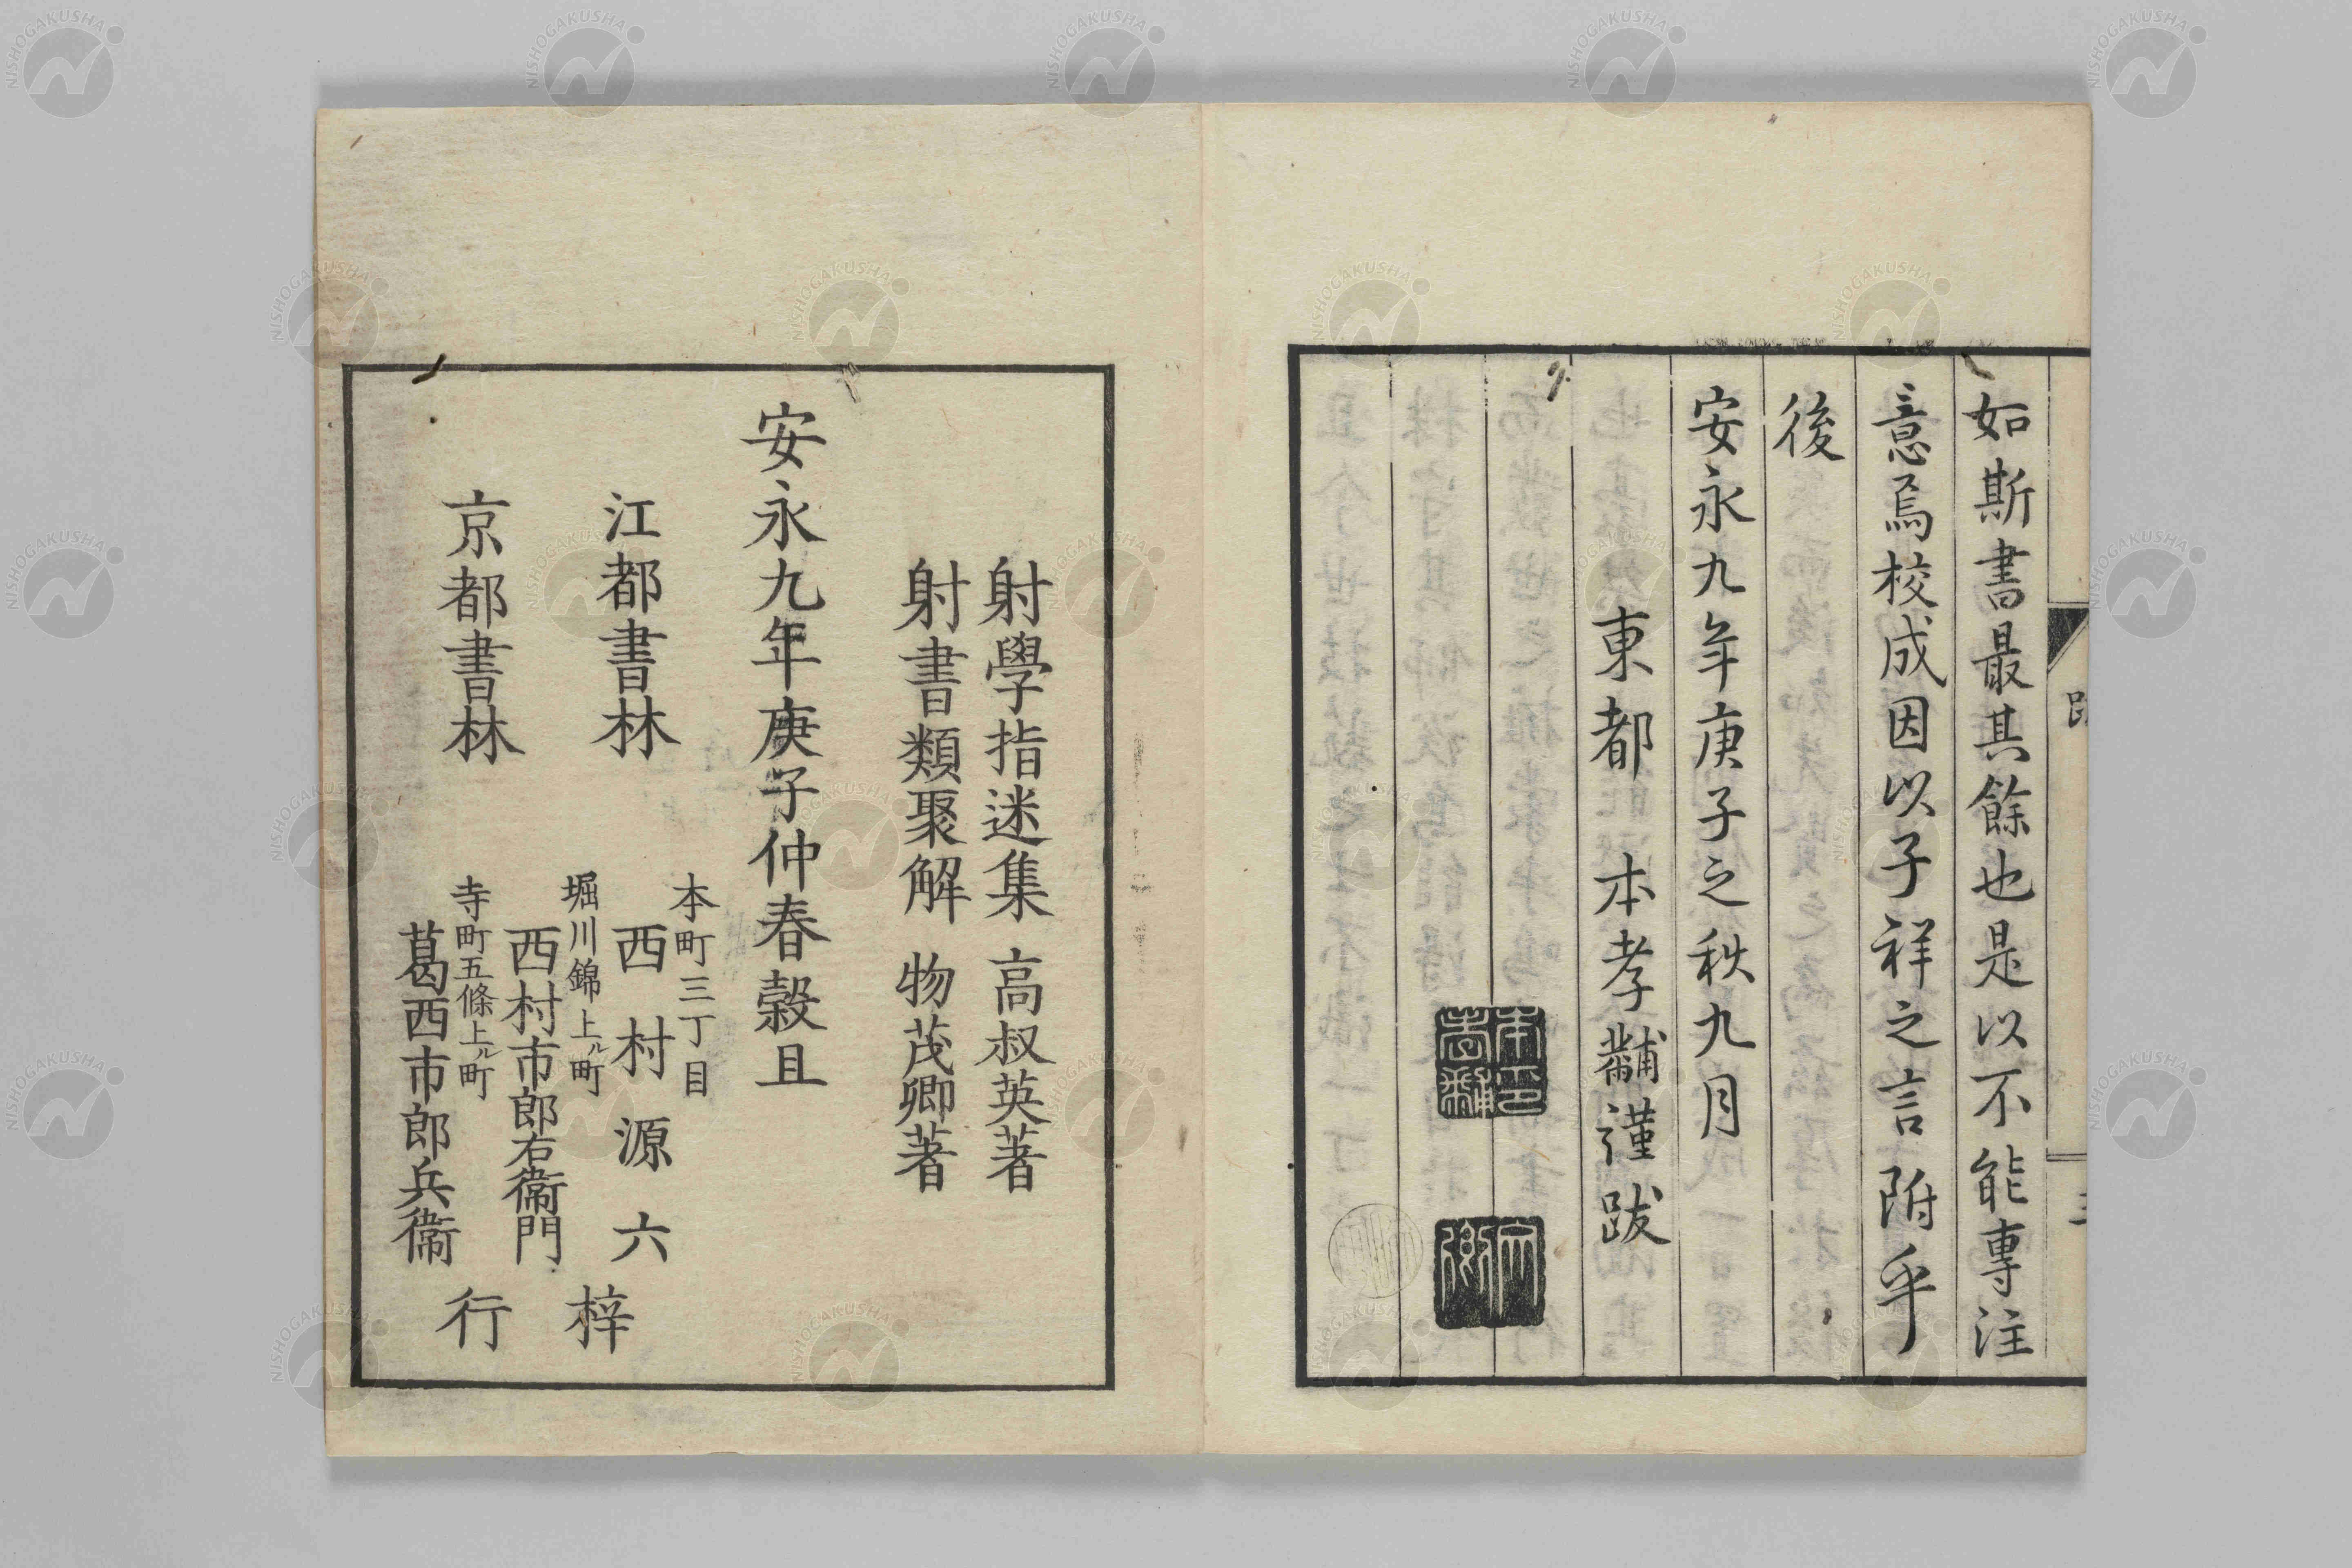 如斯書最其餘也是以不能專注
意焉校成因以子祥之言附乎
後
安永九年庚子之秋九月
東都 本孝黼謹跋
射學指迷集 高叔英著
射書類聚解 物茂卿著
安永九年庚子仲春穀旦
江都書林
本町三丁目
西村源六
京都書林
堀川錦上ル町
西村市郎右衞門
寺町五條上ル町
葛西市郎兵衞
梓
行
NISHOGAKUSHA